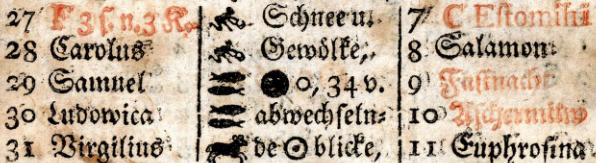 27 F 3 s. n. 3 K. Schnee u. 7 C Estomihi
28 Carolus Gewölke, 8 Salamon
29 Samuel ● 0, 34 v. 9 Fastnacht
30 Ludovica abwechseln= 10 Aschermittw
31 Virgilius de ☉ blicke, 11 Euphrosina